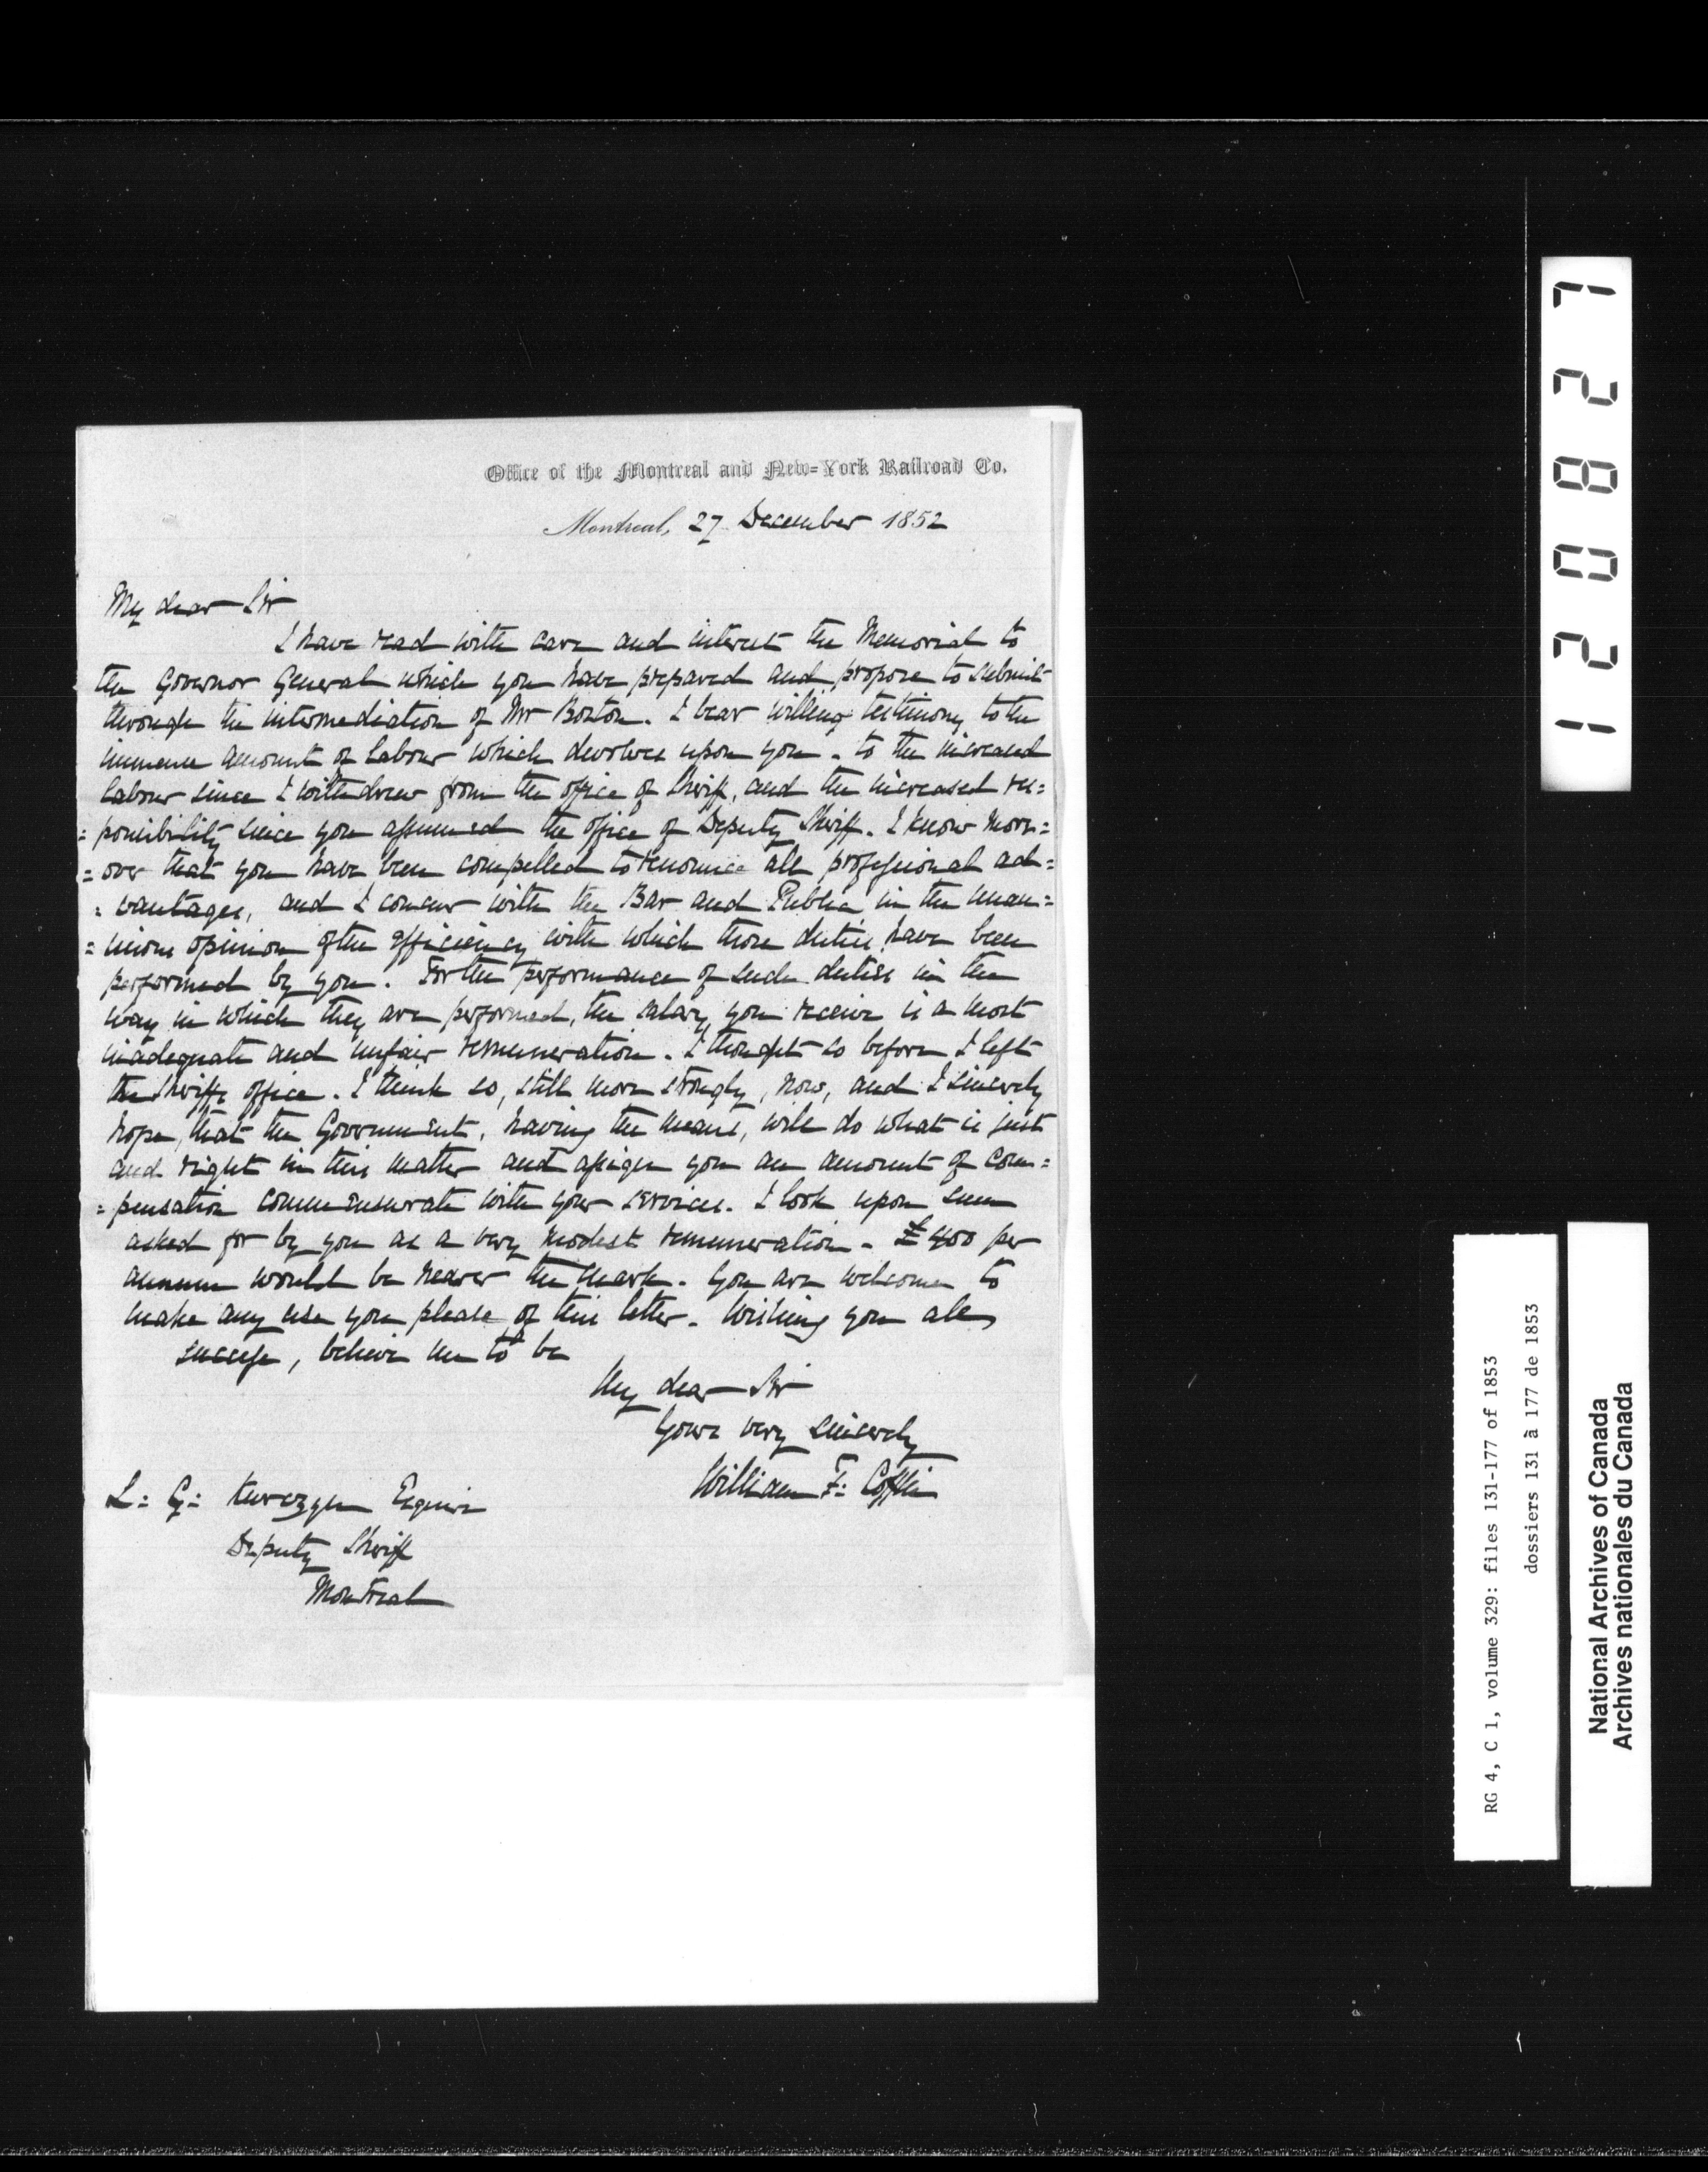 Office of the Montreal and New=York Railroad Co.
Montreal, 27 December 1852
My dear Sir
I have read with care and interest the Memorial to
the Governor General which you have prepared and propose to submit
through the intermediation of Mr Boston. I bear willing testimony to the
immense amount of labour which devolves upon you - to the increased
labour since I withdrew from the office of Sheriff, and the increased res=
=ponsibility since you assumed the office of Deputy Sheriff. I know more=
=over that you have been compelled to renounce all professional ad=
=vantages, and I concur with the Bar and Public in the unan=
=imous opinion of the efficiency with which those duties have been
performed by you. For the performance of such duties in the
way in which they are performed, the salary you receive is a most
inadequate and unfair remuneration. I thought so before I left
the Sheriffs office. I think so, still more strongly, now, and I sincerely
hope, that the Government, having the means, will do what is just
and right in this matter and assign you an amount of com=
=pensation commensurate with your services. I look upon sum
asked for by you as a very modest remuneration - £400 per
annum would be nearer the mark. You are welcome to
make any use you please of this letter. Wishing you all
success, believe me to be
My dear Sir
Yours very sincerely
William F: Coffin
L: G: Kurczyn Esquire
Deputy Sheriff
Montreal
120827
RG 4, C 1, volume 329: files 131-177 of 1853
dossiers 131 à 177 de 1853
National Archives of Canada
Archives nationales du Canada